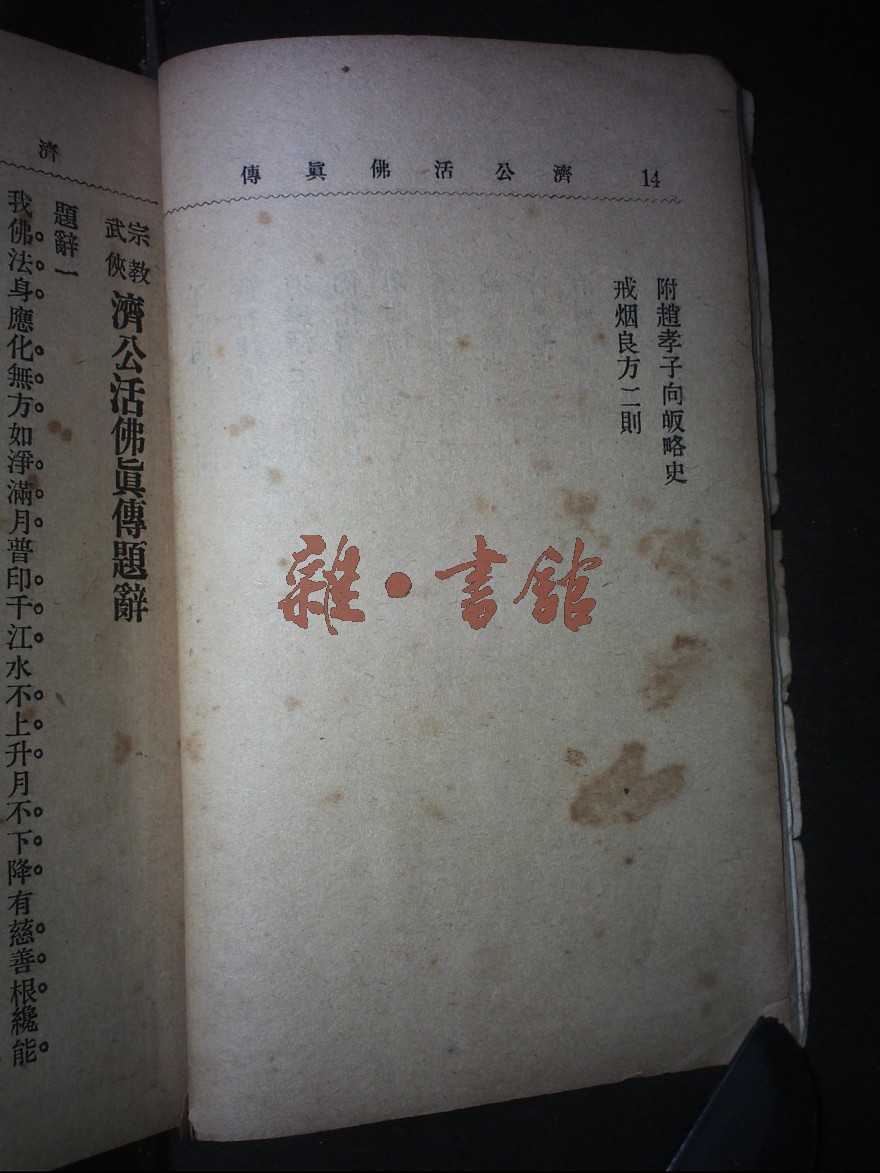 濟公活佛眞傳 14
附趙孝子向皈略史
戒烟良方二則
雜·書館
濟
宗教武俠 濟公活佛眞傳題辭
題辭一
我佛。法。身。應化。無。方。如淨。滿。月。普印。千。江。水不。上。升。月不。下。降。有慈。善。根。纔能。